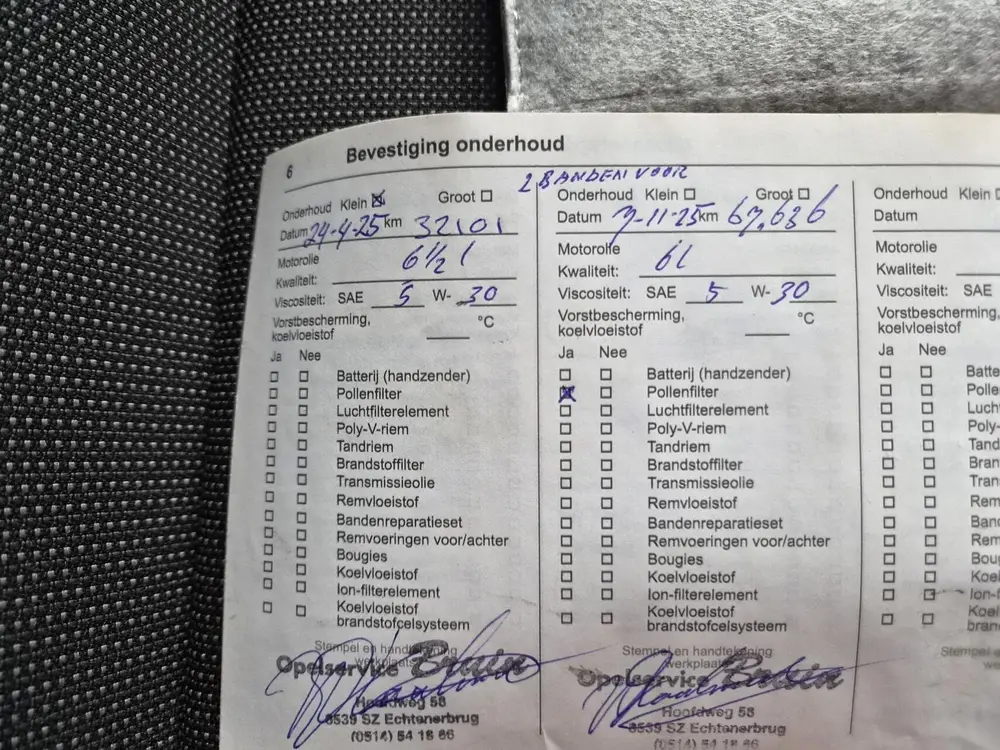 6 Bevestiging onderhoud
2 BANDEN VOOR
Onderhoud Klein Groot
Datum 24-4-25 km 32101
Motorolie 6 1/2 l
Kwaliteit:
Viscositeit: SAE 5 W- 30
Vorstbescherming, °C
koelvloeistof
Ja Nee
Batterij (handzender)
Pollenfilter
Luchtfilterelement
Poly-V-riem
Tandriem
Brandstoffilter
Transmissieolie
Remvloeistof
Bandenreparatieset
Remvoeringen voor/achter
Bougies
Koelvloeistof
Ion-filterelement
Koelvloeistof
brandstofcelsysteem
Stempel en handtekening
werkplaats
Opelservice Bruin
Hoofdweg 58
8539 SZ Echtenerbrug
(0514) 54 18 66
Onderhoud Klein Groot
Datum 7-11-25 km 67.636
Motorolie
Kwaliteit: 6L
Viscositeit: SAE 5 W- 30
Vorstbescherming, °C
koelvloeistof
Ja Nee
Batterij (handzender)
Pollenfilter
Luchtfilterelement
Poly-V-riem
Tandriem
Brandstoffilter
Transmissieolie
Remvloeistof
Bandenreparatieset
Remvoeringen voor/achter
Bougies
Koelvloeistof
Ion-filterelement
Koelvloeistof
brandstofcelsysteem
Stempel en handtekening
werkplaats
Opelservice Bruin
Hoofdweg 58
8539 SZ Echtenerbrug
(0514) 54 18 66
Onderhoud Klein
Datum
Motorolie
Kwaliteit:
Viscositeit: SAE
Vorstbescherming,
koelvloeistof
Ja Nee
Batte
Polle
Luch
Poly-
Tand
Bran
Tran
Rem
Ban
Rem
Bou
Koe
Ion-f
Koe
bran
Stempel en
we